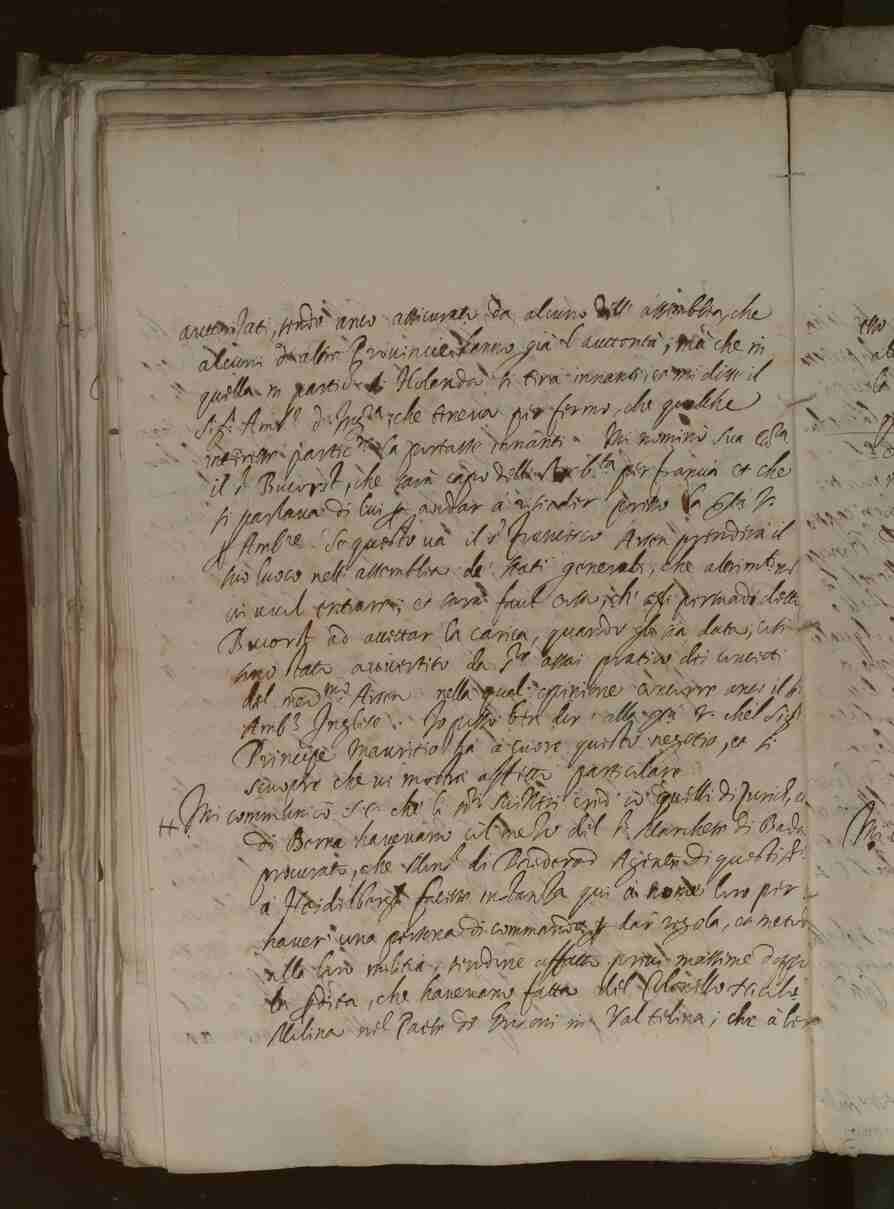 auttorizati, sendo anco assicurato da alcuno dell' assemblea, che
alcuni di altre Provincie hanno già l' auttorità; mà che in
quella in partic.re di Holanda si tira innanti; et mi disse il
Sig.r Amb.r d' Ingh.ra, che teneva per fermo, che qualche
interesse partic.re la portasse avanti. Mi nominò sua
il S.r che sarà capo dell' per Francia et che
si parlava di lui p andar à risieder presso la Ser.tà V.
p Amb.re. Se questo và il S.r Francesco Arsen prenderà il
suo luoco nell' assemblea de' Stati generali, che altrimenti non
vi vuol entrare; et sarà facil cosa, ch' egli persuada detto
ad accettar la carica, quando gli sia data; così
sono stato avvertito da assai pratico dei concetti
del med.mo Arsen nella qual opinione concorre anco il S.r
Amb.r Inglese. Io posso ben dir alla Ser.tà V. che 'l Sig.r
Principe Mauritio hà à cuore questo negotio, et si
scuopre che vi mostra affetto particolare.
Mi communicò S. E. che li SS.ri Svizzeri cioè quelli di Zurich, et
di Berna havevano col mezo del S.r Marchese di Bada
procurato, che Mons.r di Brederod Agente di questi SS.ri
a Heidelbergh facesse instanza qui à nome loro per
haver una persona di commando p dar regola, et metter
nella loro militia, tendine affatto privi massime doppo
la perdita, che havevano fatta del Colonello
Milina nel Paese de Grisoni in Valtelina; che à loro